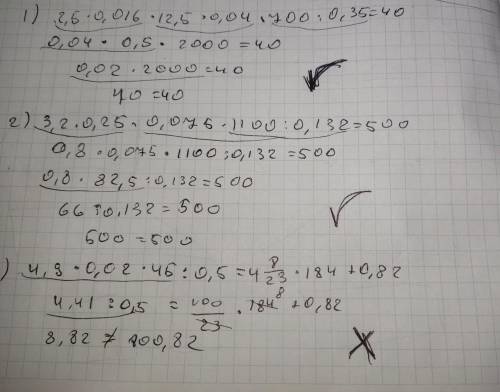 1) 2,5·0,016·12,5·0,04·700:0,35=40
0,04·0,5·2000=40
0,02·2000=40
40=40
2) 3,2·0,25·0,075·1100:0,132=500
0,8·0,075·1100:0,132=500
0,8·82,5:0,132=500
66:0,132=500
500=500
) 4,9·0,02·45:0,5=4 8/23·184+0,82
4,41:0,5=100/23·184⁸+0,82
8,82≠800,82